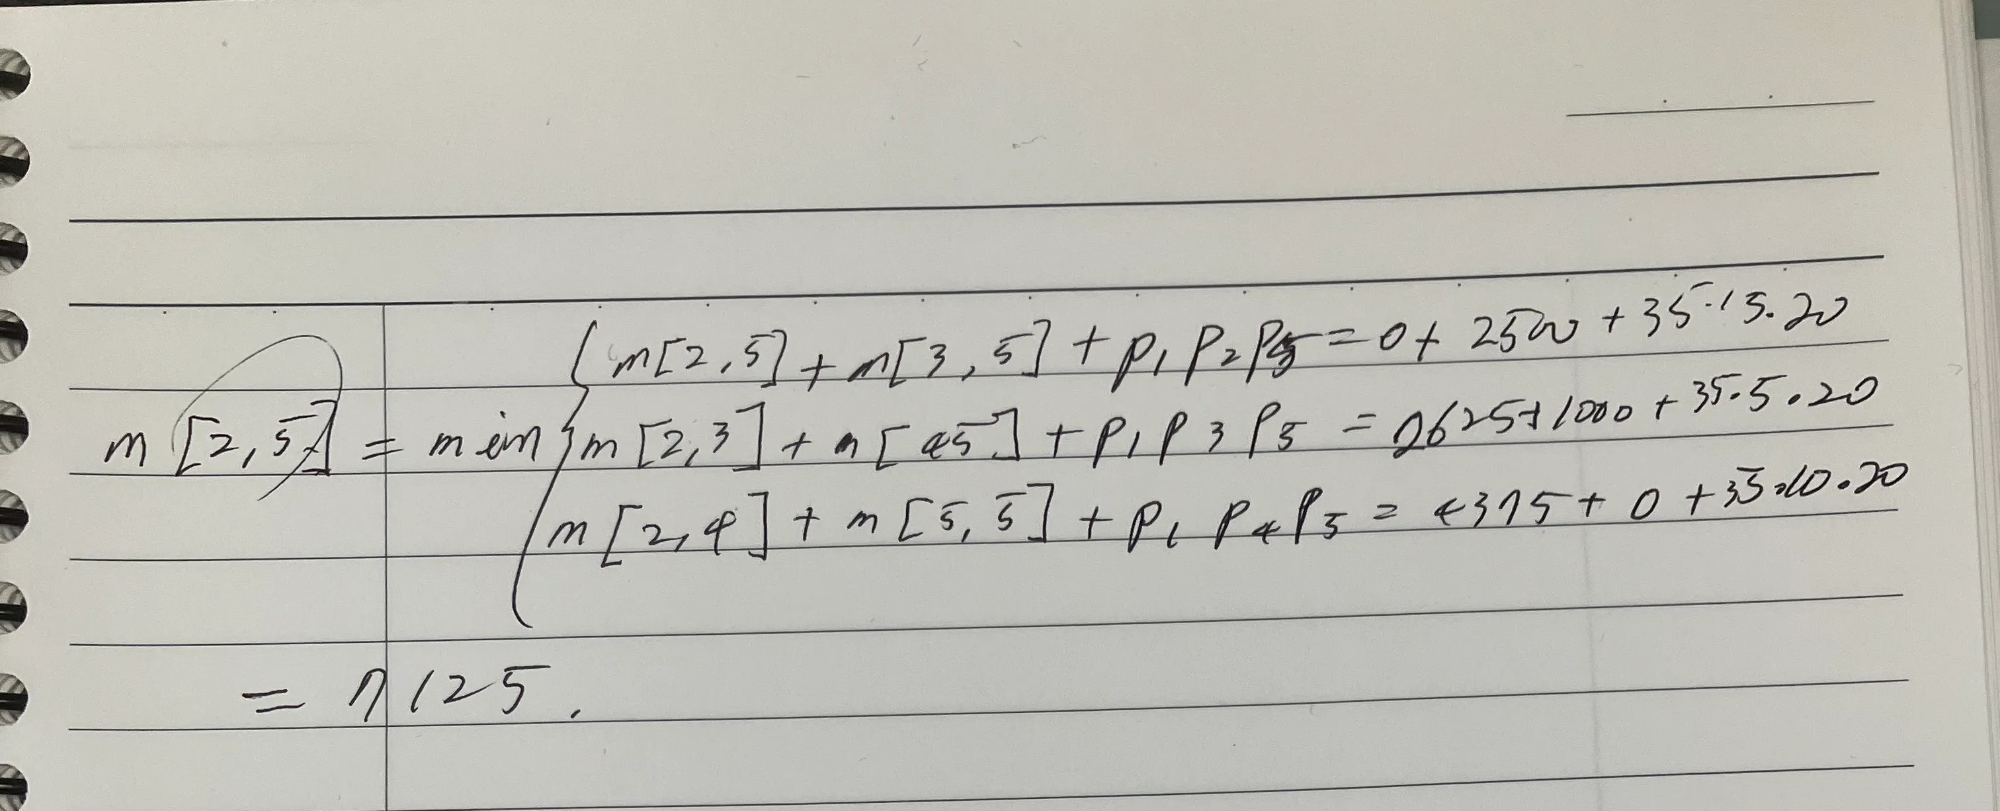 m[2,5]+m[3,5]+p₁p₂p₅=0+2500+35·15·20
m[2,5]=min{m[2,3]+m[45]+p₁p₃p₅=2625+1000+35·5·20
m[2,4]+m[5,5]+p₁p₄p₅=4375+0+35·10·20
=7125.